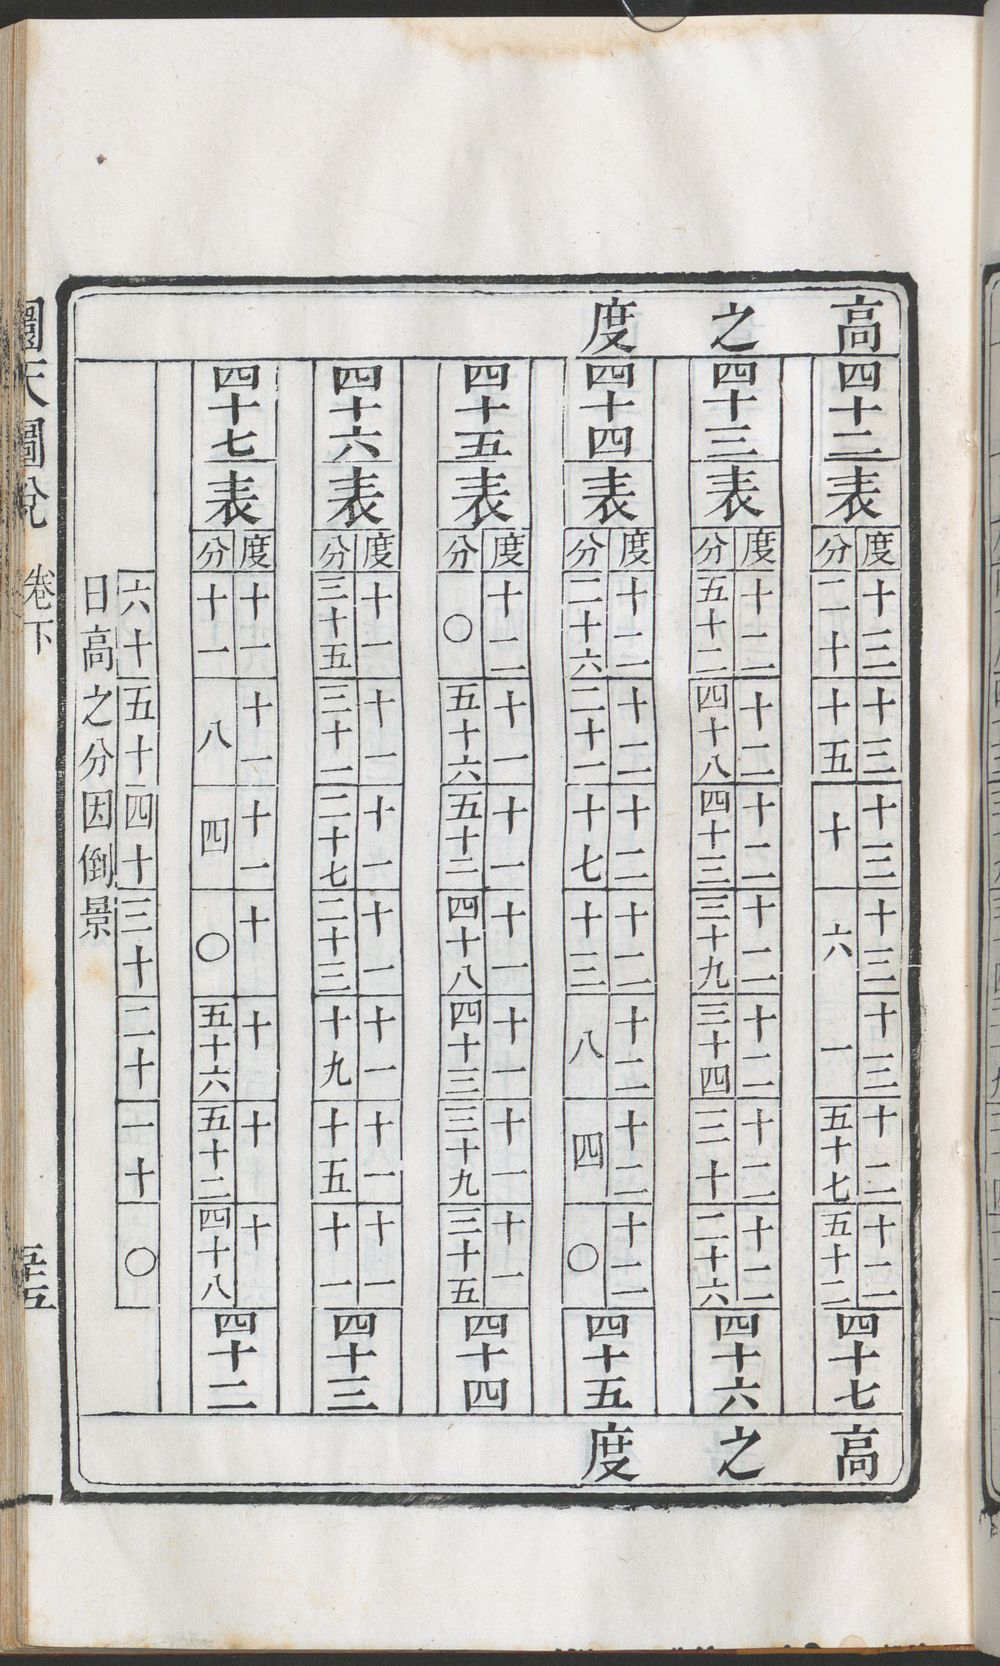 高之度
四十二表
度 十三 十三 十三 十三 十三 十二 十二
分 二十 十五 十 六 一 五十七 五十二
四十七
四十三表
度 十二 十二 十二 十二 十二 十二 十二
分 五十二 四十八 四十三 三十九 三十四 三十 二十六
四十六
四十四表
度 十二 十二 十二 十二 十二 十二 十二
分 二十六 二十一 十七 十三 八 四 〇
四十五
四十五表
度 十二 十一 十一 十一 十一 十一 十一
分 〇 五十六 五十二 四十八 四十三 三十九 三十五
四十四
四十六表
度 十一 十一 十一 十一 十一 十一 十一
分 三十五 三十一 二十七 二十三 十九 十五 十一
四十三
四十七表
度 十一 十一 十一 十 十 十 十
分 十一 八 四 〇 五十六 五十二 四十八
四十二
六十 五十 四十 三十 二十 一十 〇
日高之分因倒景
高之度
圜天圖說 卷下